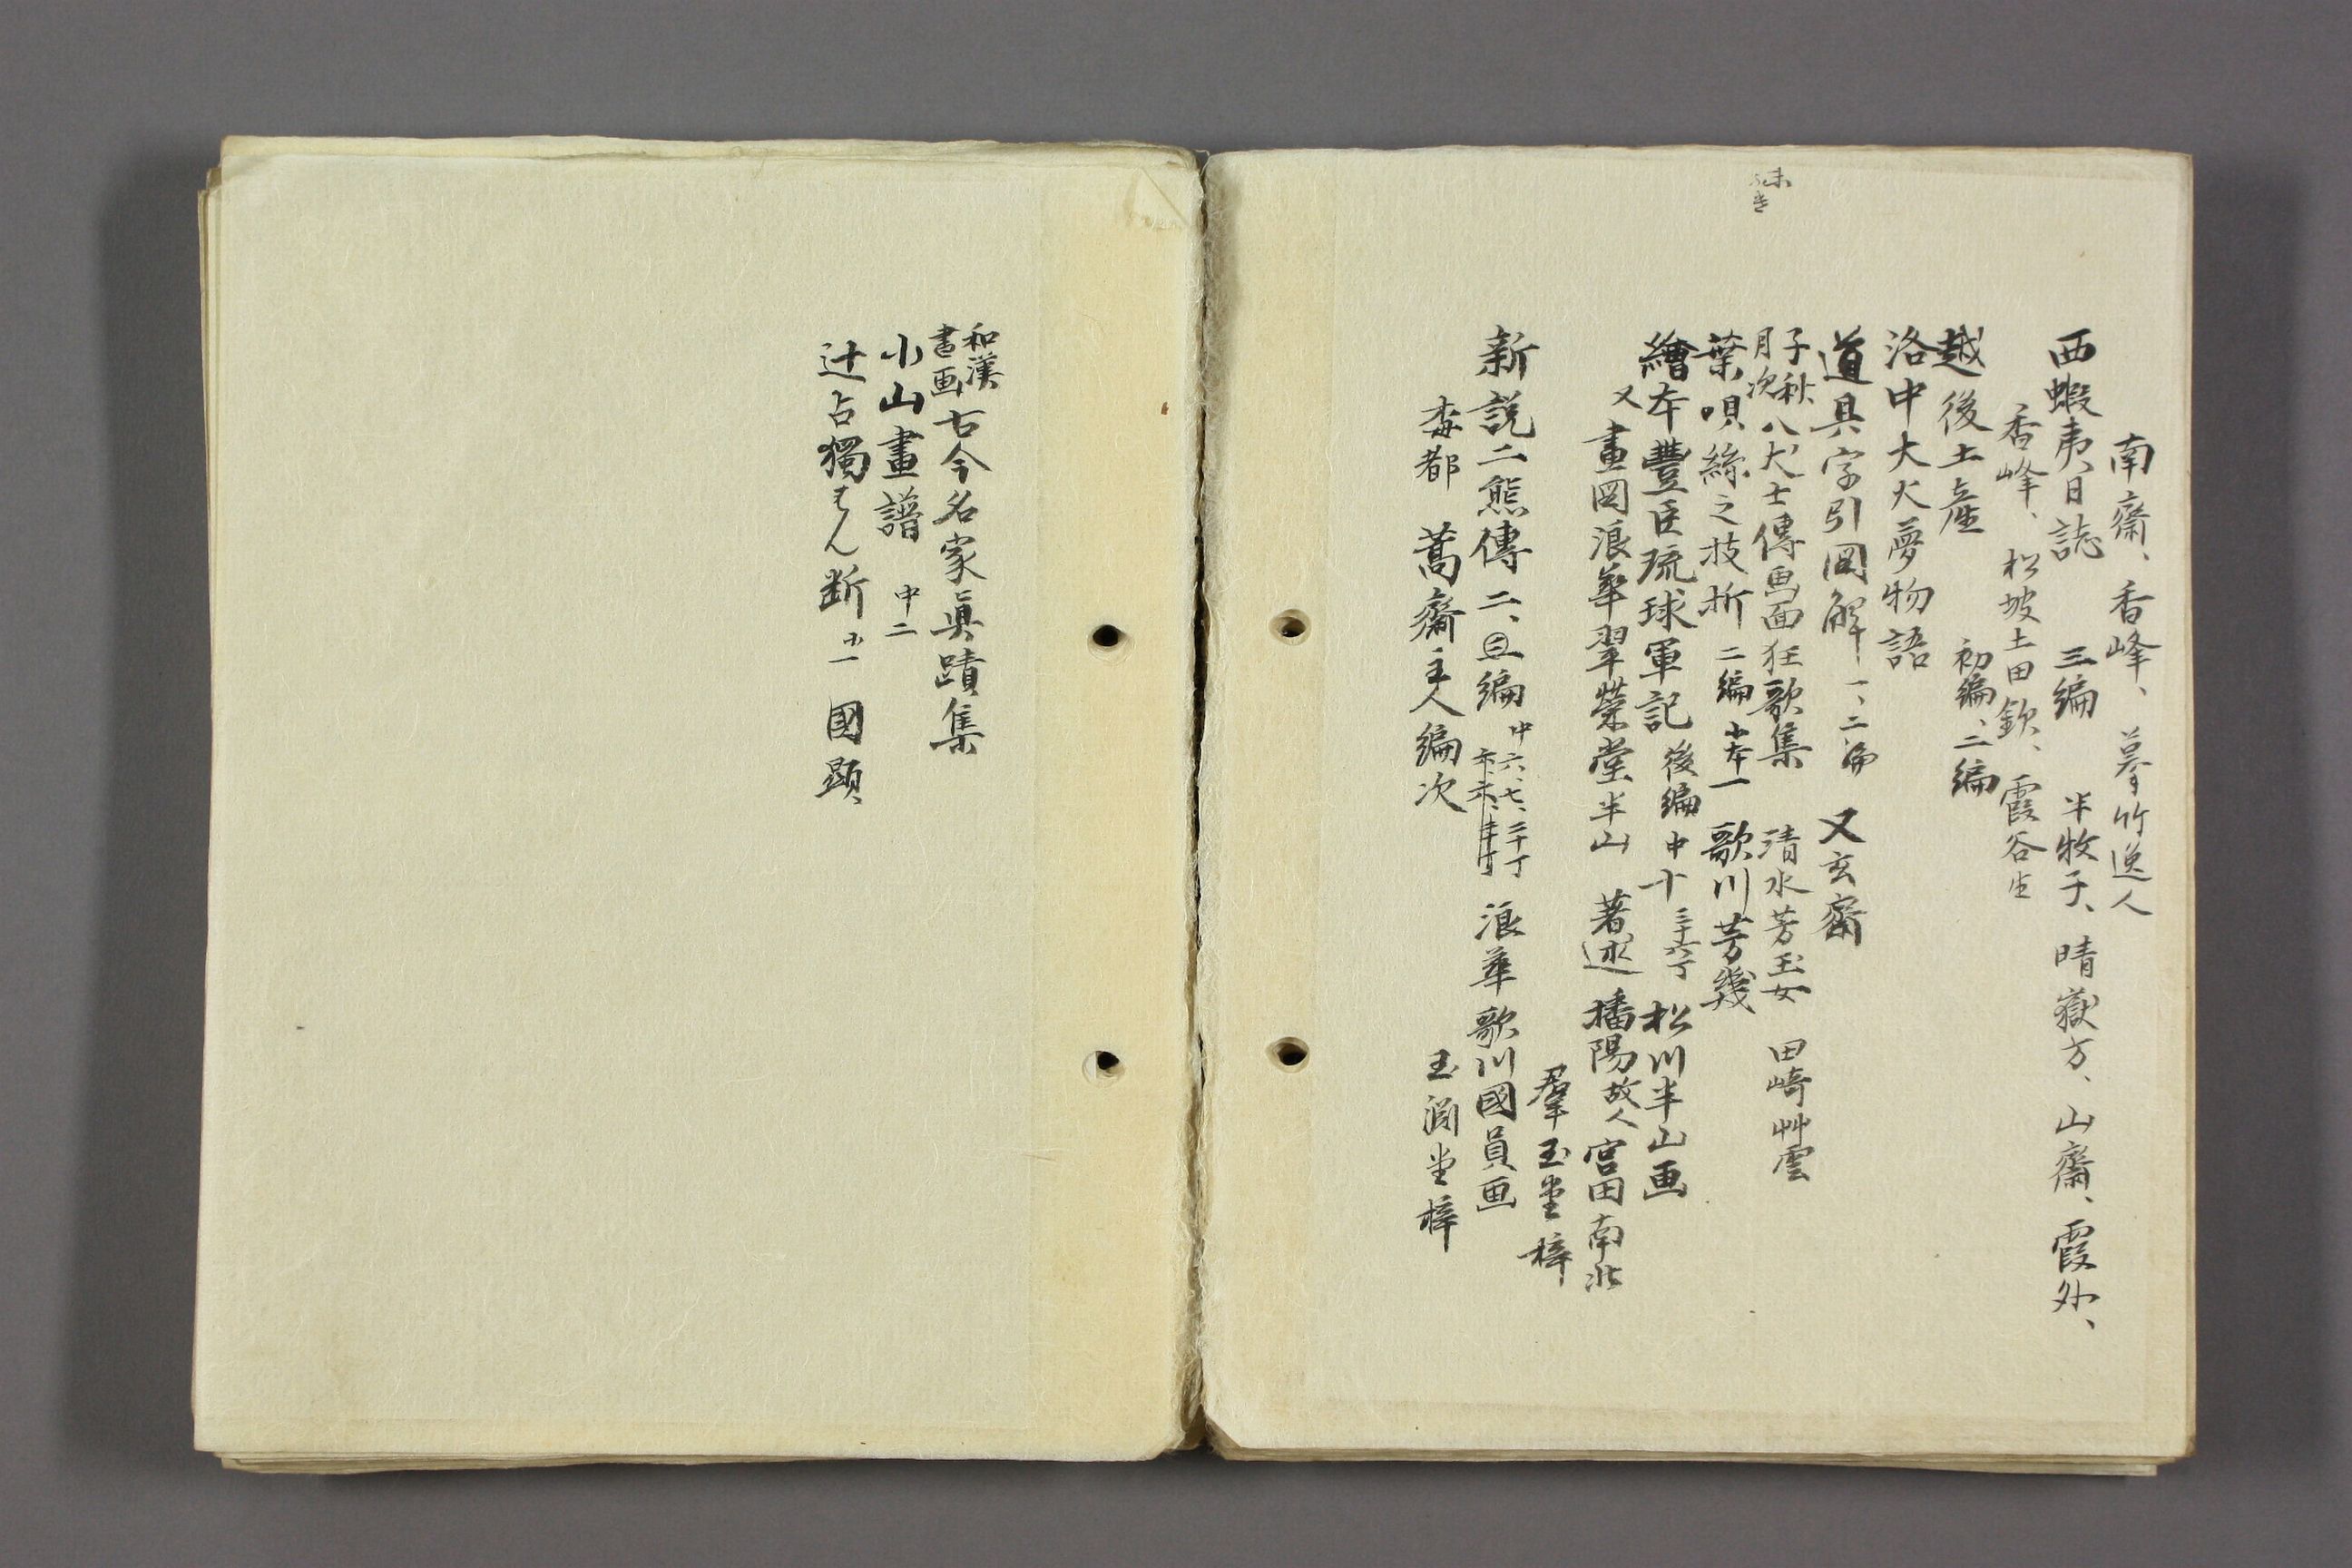 南齋、香峰、摹竹逸人
西蝦夷日誌 三編 半牧子、晴嶽方、山齋、霞外、
香峰、松坡土田欽、霞谷生
越後土産 初編、二編
洛中大火夢物語
道具字引図解 一、二編 又玄齋
子秋
月次
八犬士傳画面狂歌集 清水芳玉女 田崎艸雲
葉唄絲之枝折 二編 小本一 歌川芳幾
繪本豐臣琉球軍記 後編 中十 三十六丁 松川半山画
又 畫図浪華翠榮堂半山 著述 播陽故人宮田南北
羣玉堂梓
新説二熊傳 二、三編 中六、七、二十丁 浪華歌川國員画
毒都 蒿齋主人編次 玉淵堂梓
和漢
書画
古今名家眞蹟集
小山畫譜 中二
辻占獨はん断 小一 國顕